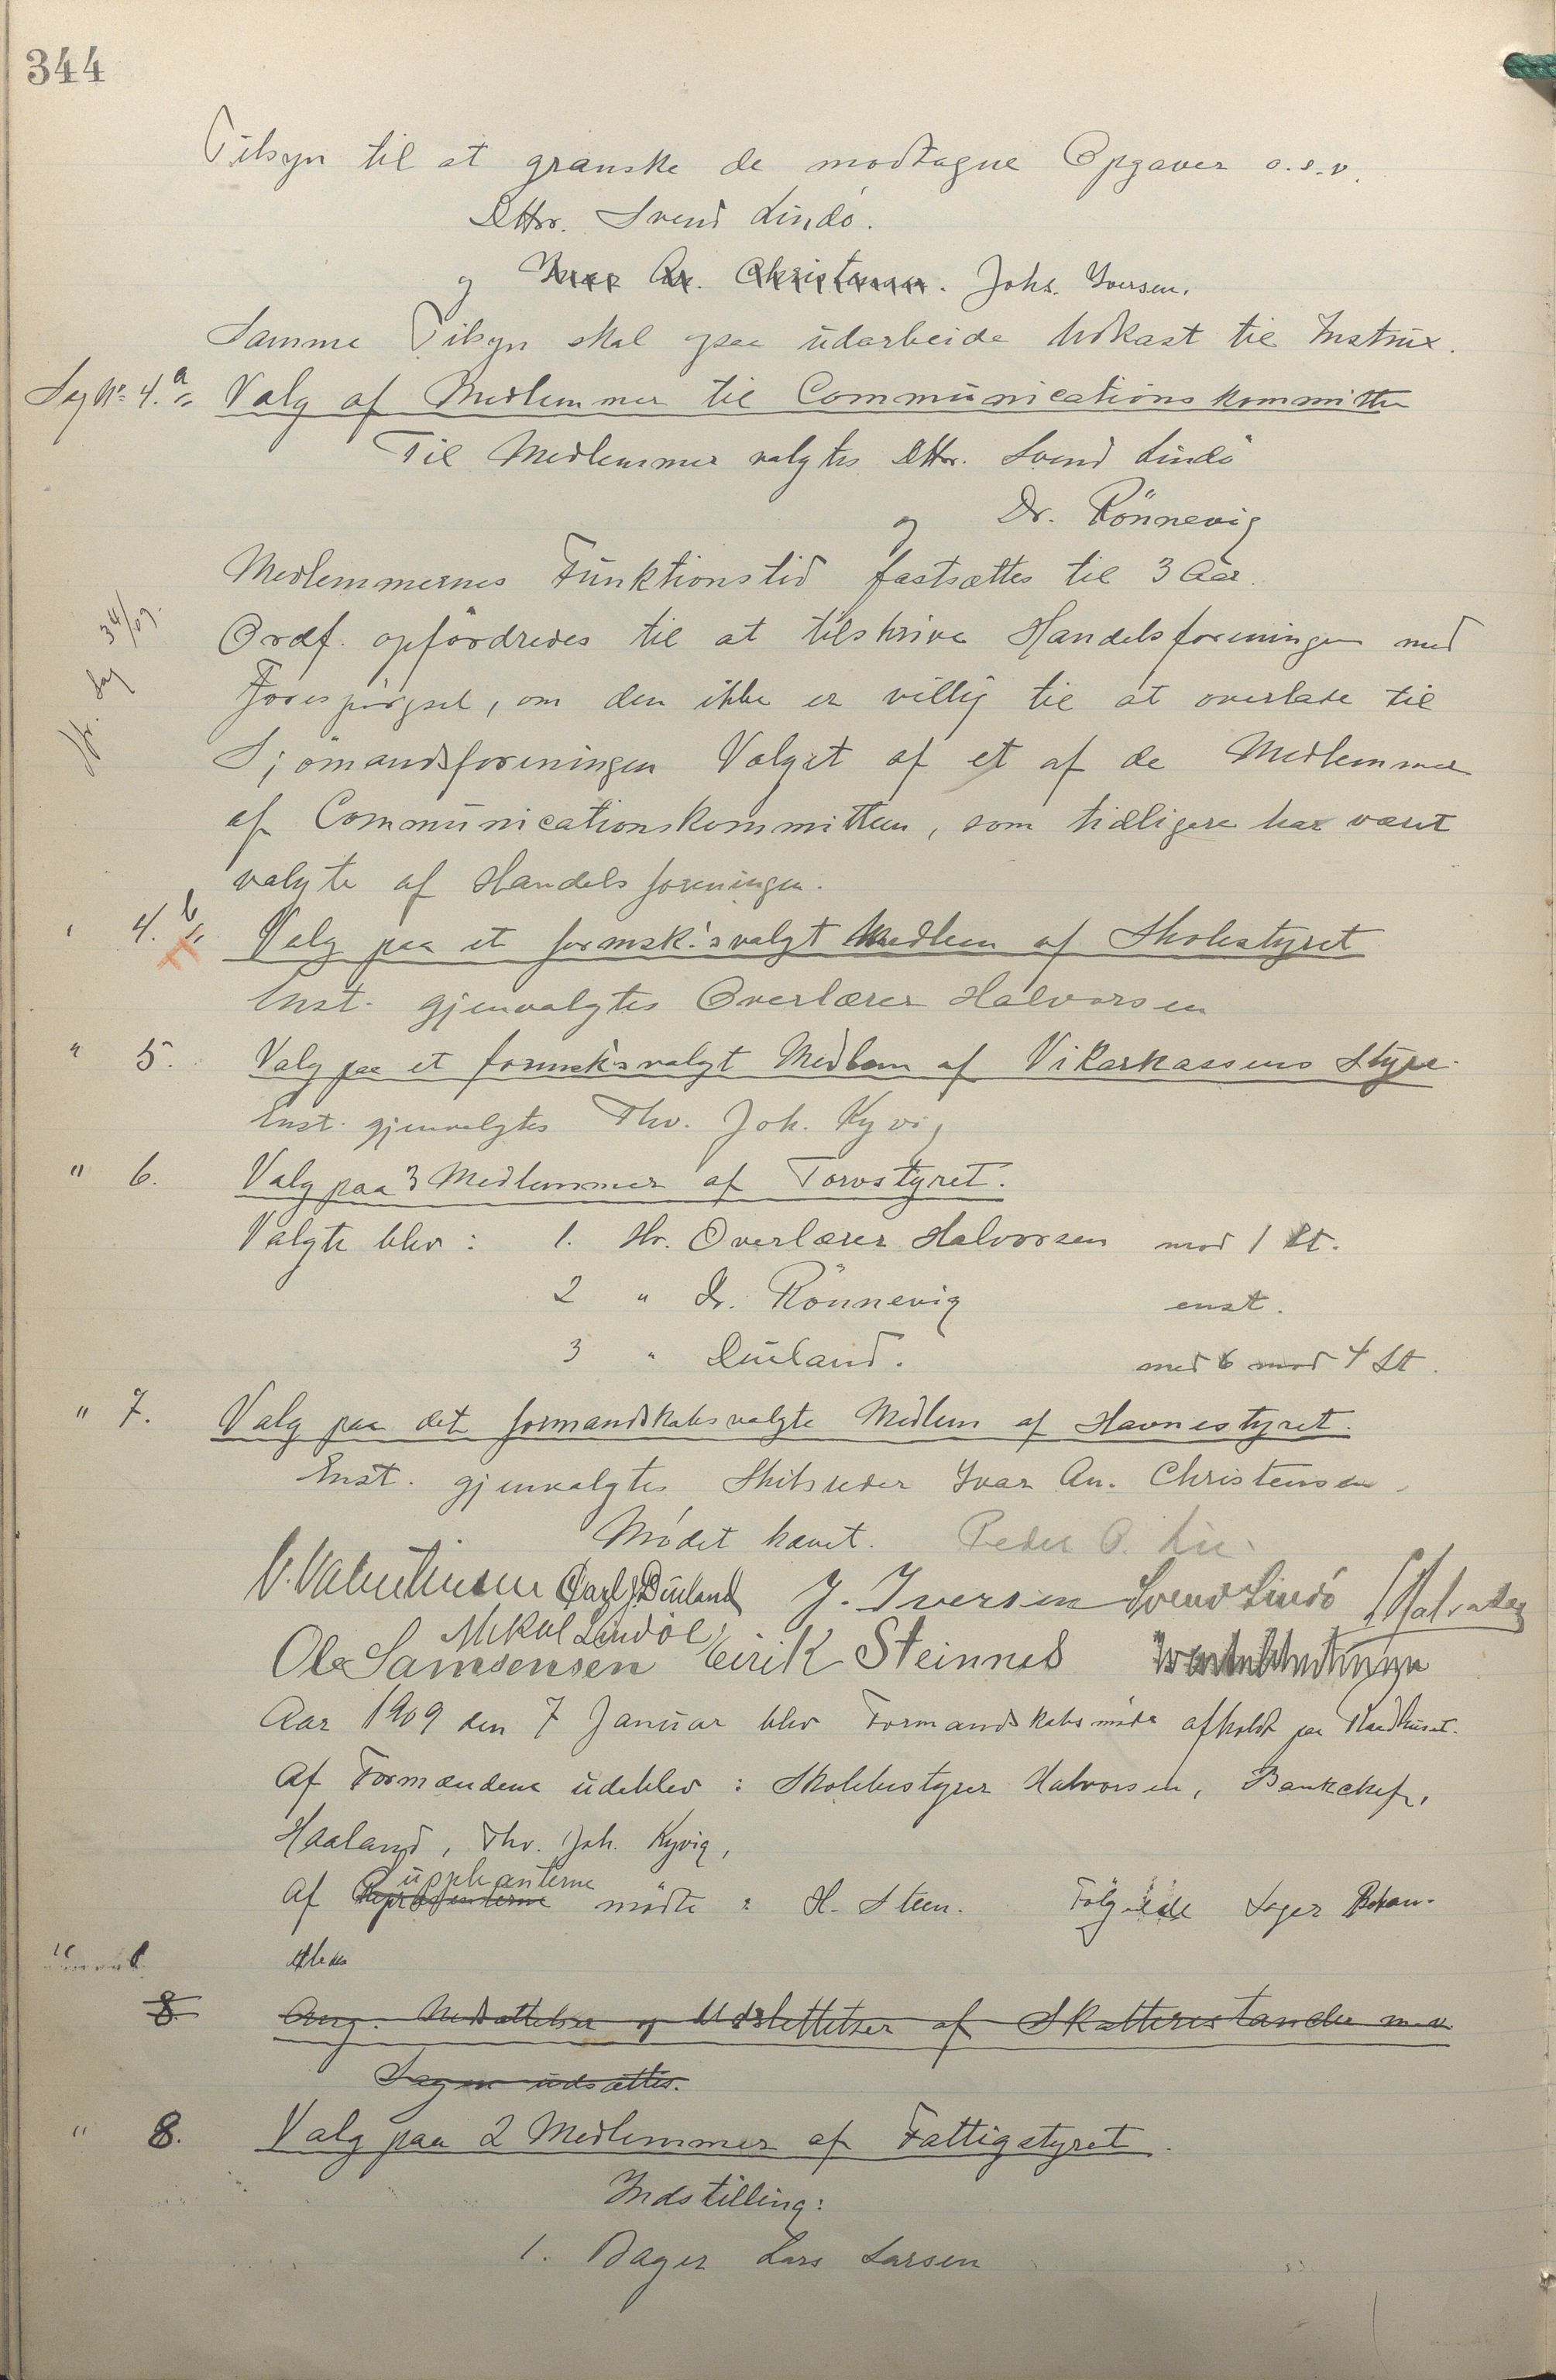 344
Tilsyn til at granske de modtagne Opgaver o.s.v.
DHrr. Svend Lindö.
og Ivar An. Christensen. Johs. Iversen.
Samme Tilsyn skal ogsaa udarbeide Udkast til Instrux.
Sag No 4.a Valg af Medlemmer til Communicationskommitteen
Til Medlemmer valgtes DHrr. Svend Lindö
og Dr. Rönnevig
Medlemmernes Funktionstid fastsættes til 3 Aar.
Jfr. Sag 34/09.
Ordf. opfordredes til at tilskrive Handelsforeningen med
Forespörgsel, om den ikke er villig til at overlade til
Sjömandsforeningen Valget af et af de Medlemmer
af Communicationskommitteen, som tidligere har været
valgte af Handelsforeningen.
" 4. b Valg paa et formsk.'svalgt Medlem af Skolestyret
Enst. gjenvalgtes Overlærer Halvorsen
" 5. Valg paa et formsk'svalgt Medlem af Vikarkassens Styre.
Enst. gjenvalgtes Thv. Joh. Kyvig
" 6. Valg paa 3 Medlemmer af Torvstyret.
Valgte blev : 1. Hr. Overlærer Halvorsen mod 1 St.
2 " Dr. Rönnevig enst.
3 " Dueland. med 6 mod 4 St.
" 7. Valg paa det formandskabsvalgte Medlem af Havnestyret.
Enst. gjenvalgtes Skibsreder Ivar An. Christensen.
Mödet hævet. Peder O. Lie.
V. Valentinsen Carl J. Dueland J. Iversen Svend Lindö Halvorsen
Mikal Lindöe
Ole Samsonsen Eirik Steinnes
Aar 1909 den 7 Januar blev Formandskabsmöde afholdt paa Raadhuset.
Af Formændene udeblev : Skolebestyrer Halvorsen, Bankchef,
Haaland, Thv. Joh. Kyvig,
Suppleanterne
Af Repræsenterne mödte : H. Steen. Fölgende Sager Behan-
dledes
8. Ang. Nedsættelser og Udslettelser af Skatterestancer m.v.
Sagen udsættes.
" 8. Valg paa 2 Medlemmer af Fattigstyret.
Indstilling:
1. Bager Lars Larsen